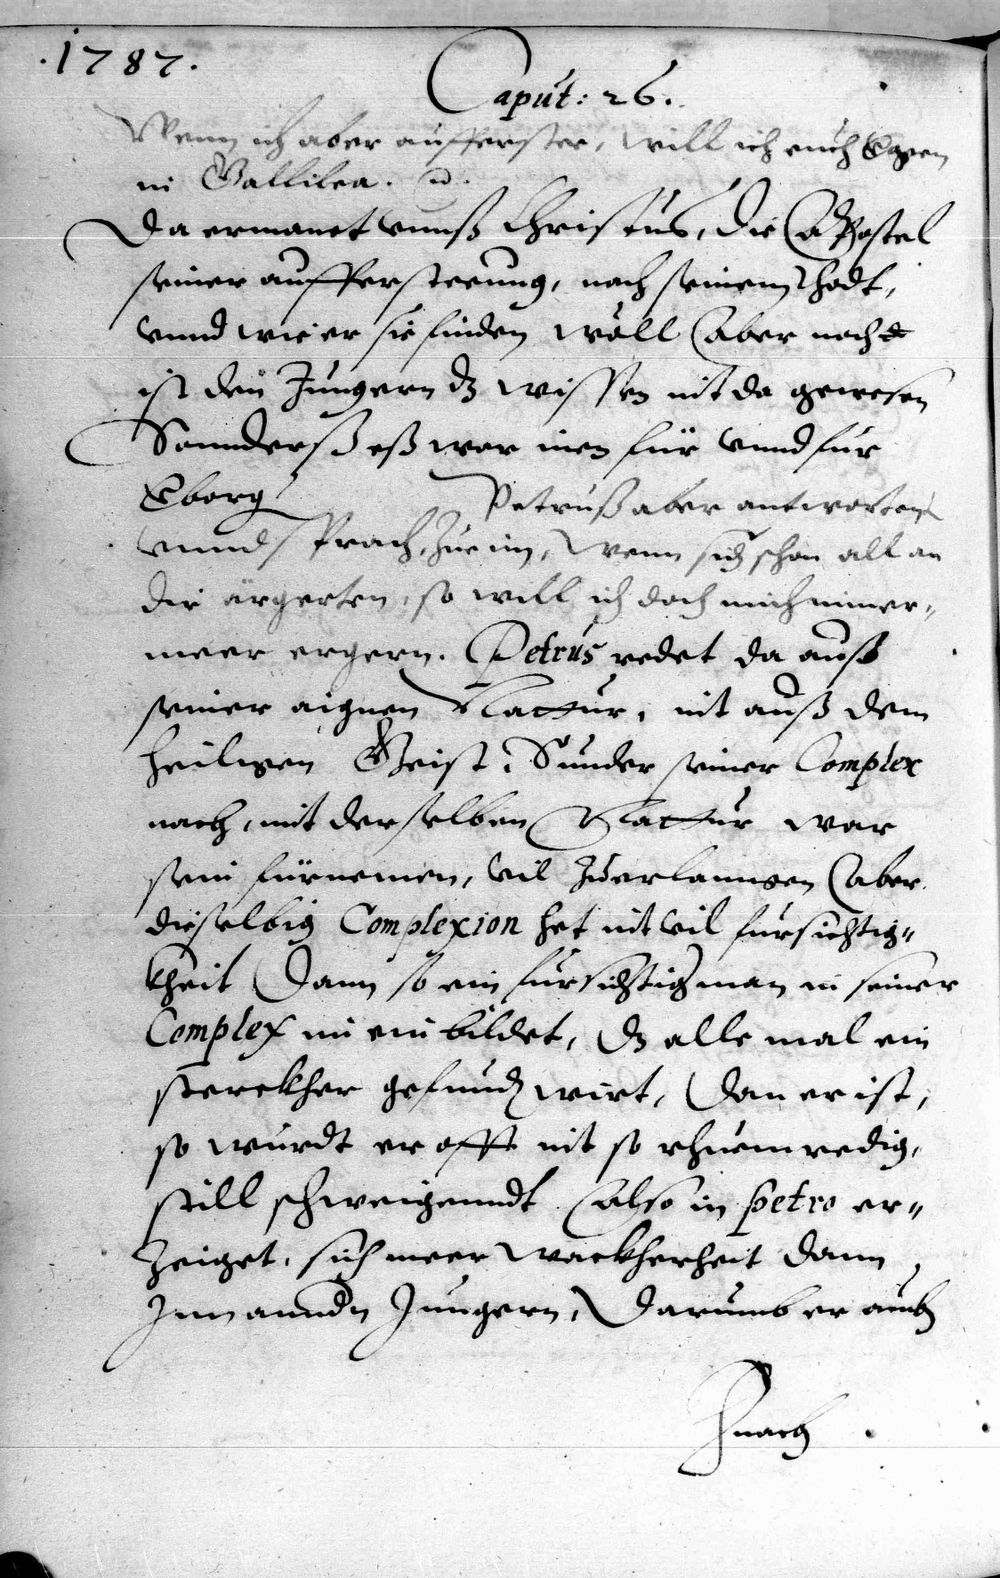 .1787.
Caput: 26.
Wenn ich aber aufferstee, will ich euch
in Gallilea. 
Da ermanet unnß Christus, die Apostel
seiner auffersteeung, nach seinem Thodt,
unnd wie er sie finden woll Aber noch
ist den Jungern dz wissen nit da gewesen
Sonnderß eß war inen für unnd fur
 Petruß aber antwortet
unnd Sprach, Zue im, Wenn sich schon all an
dir ärgerten, so will ich doch mich nimer-
meer ergern. Petrus redet da auß
seiner aignen Nattur, nit auß dem
heiligen Geist. Sunder seiner Complex
nach, mit derselben Nattur war
sein fürnemen, vil Zuerlanngen Aber
dieselbig Complexion het nit vil fursichtig-
kheit Dann so ein fursichtig man in seiner
Complex im ein bildet, dz alle mal ein
sterckher gefund wirt, Dan er ist,
so wurdt er offt nit so rhuemredig,
still schweigenndt. Also in Petro er-
Zeiget, sich meer Wackherheit dann
Inn anndn Jungern, Darumb er auch
Hnach